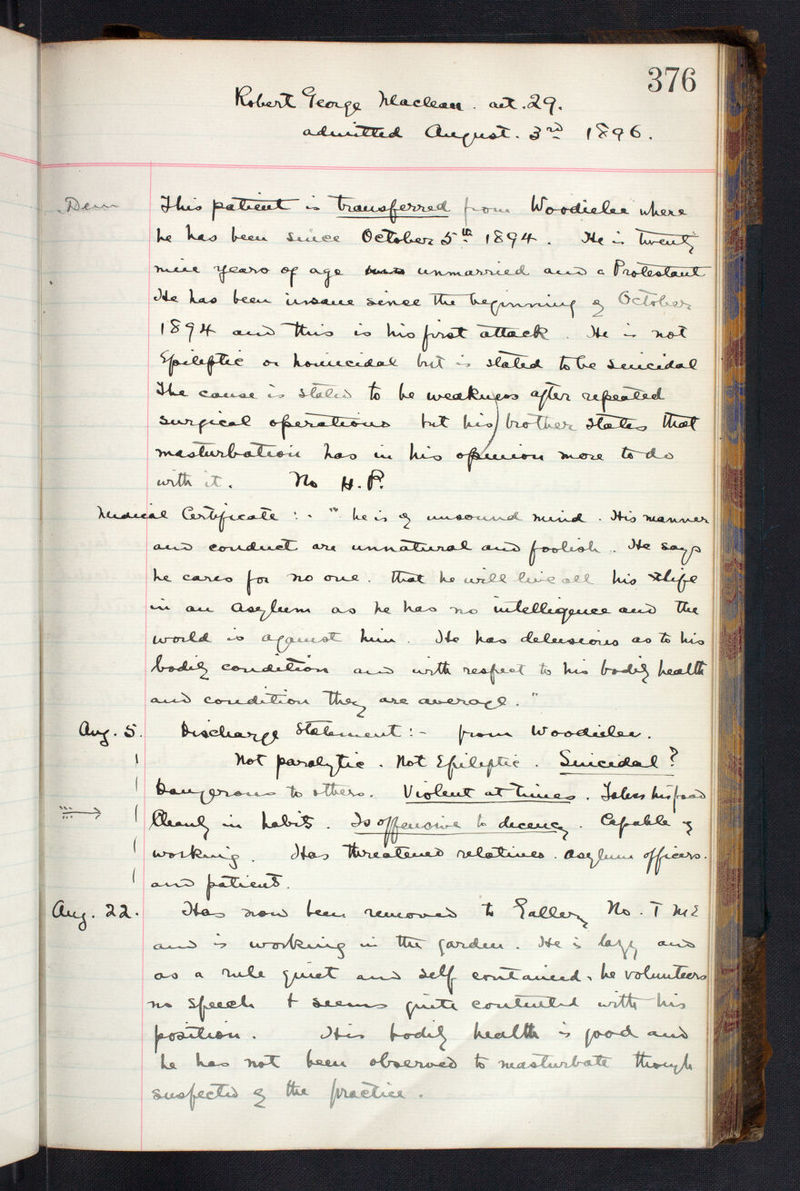 376
Robert George Maclean. aet. 29.
admitted August. 3rd 1896.
Dem This patient is transferred from Woodilee where
he has been since October 5th 1894. He is twenty
nine years of age unmarried and a Protestant
He has been insane since the beginning of October
1894 and this is his first attack. He is not
Epileptic or homicidal but is stated to be suicidal
The cause is stated to be weakness after repeated
surgical operations but his brother states that
masturbation has in his opinion more to do
with it. No H.P.
Medical Certificate :- "he is of unsound mind. His manner
and conduct are unnatural and foolish. He says
he cares for no one. that he will live all his life
in an asylum as he has no intelligence and the
world is against him. He has delusions as to his
bodily condition and with respect to his bodily health
and condition they are average."
Aug. 5. Discharge Statement :- from Woodilee.
Not paralytic. Not Epileptic. Suicidal?
Dangerous to others. Violent at times. Takes his food
Cleanly in habits. Is offensive to decency. Capable of
working. Has threatened relatives. asylum officers.
and patients.
Aug. 22. Has now been removed to Gallery No. I
and is working in the garden. He is lazy and
as a rule quiet and self contained, he volunteers
no speech & seems quite contented with his
position. His bodily health is good and
he has not been observed to masturbate though
suspected of the practice.